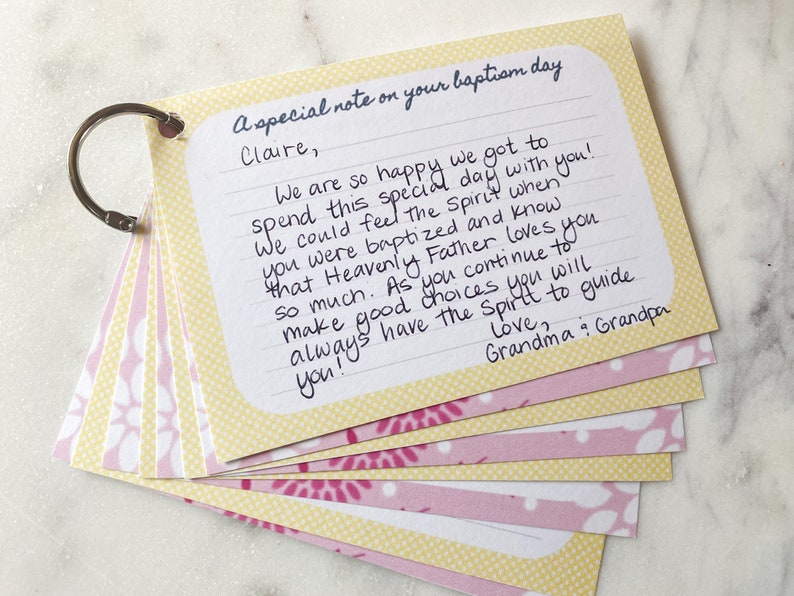 A special note on your baptism day
Claire,
We are so happy we got to
spend this special day with you!
We could feel the Spirit when
you were baptized and know
that Heavenly Father loves you
so much. As you continue to
make good choices you will
always have the Spirit to guide
you!
Love,
Grandma & Grandpa